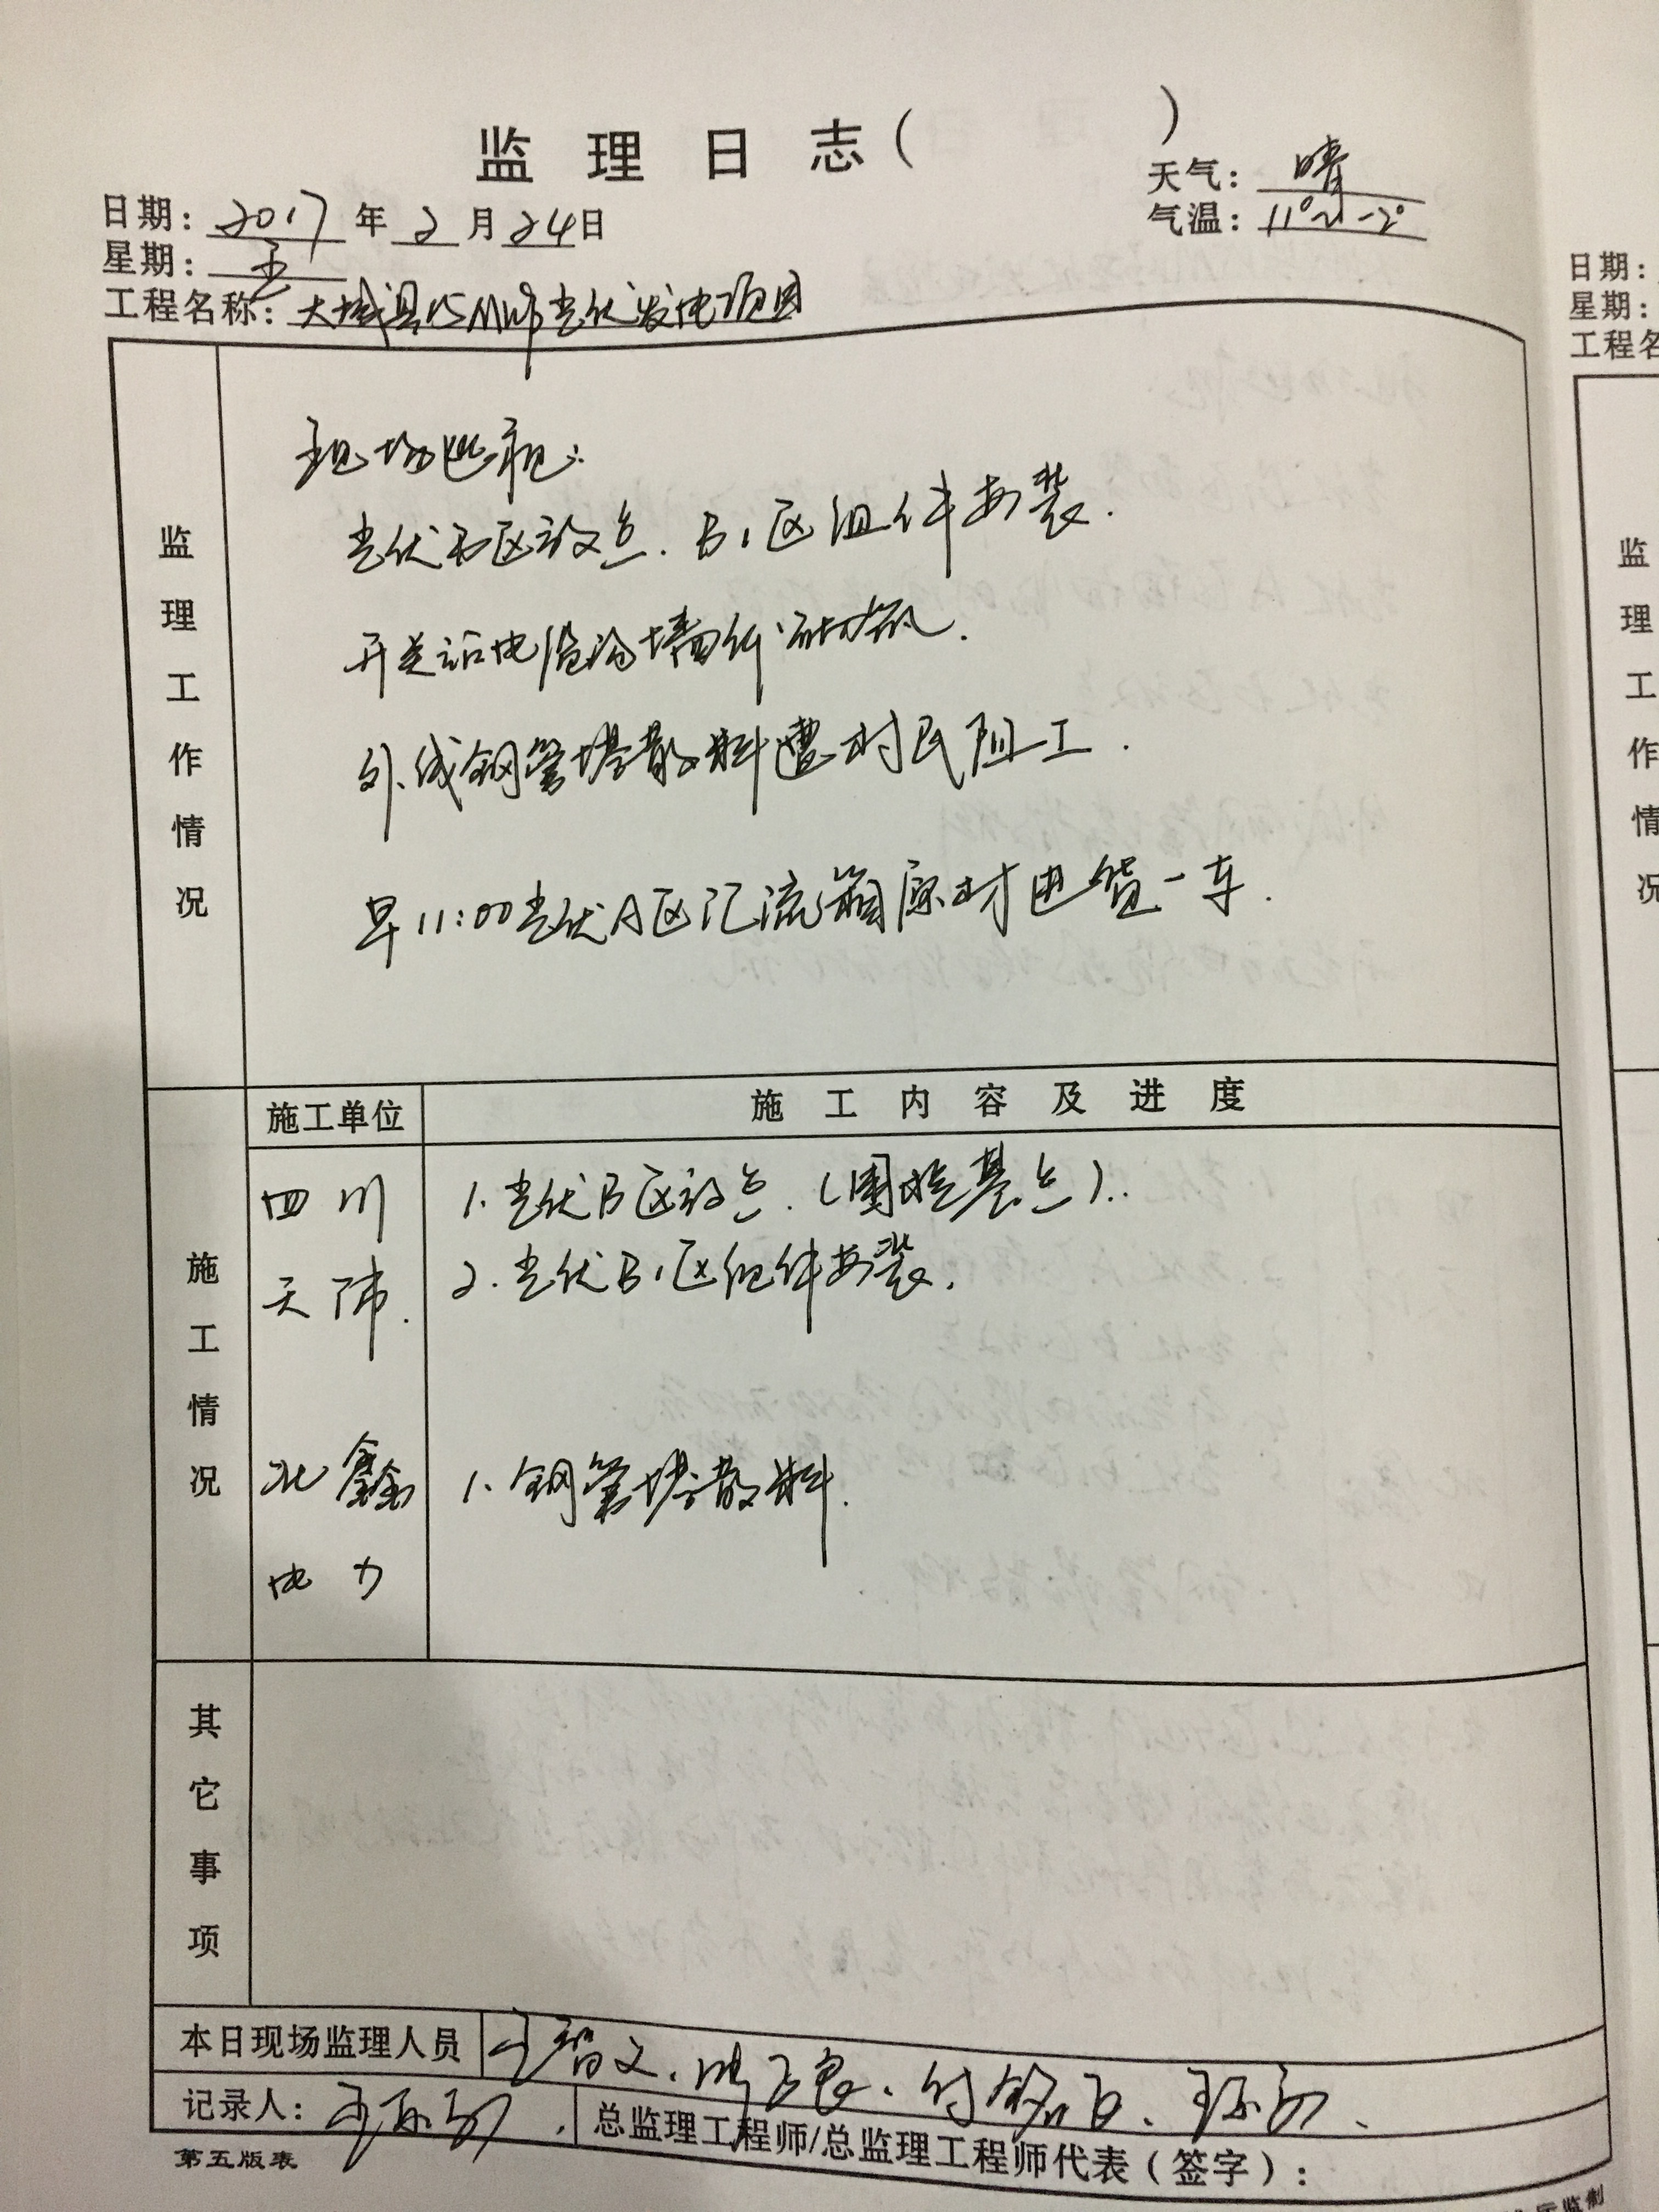 监理日志( )
天气: 晴
日期: 2017 年 2 月 24 日
气温: 11°~-2°
星期: 五
工程名称: 大城县15MWp光伏发电项目
监理工作情况
现场巡视:
光伏B区放点. B1区组件安装.
开关站电缆沟墙面
外线钢管塔散料遭村民阻工.
早11:00光伏A区汇流箱原材进货一车.
施工情况
施工单位
施工内容及进度
四川
1. 光伏B区放点. (围栏基点).
天
2. 光伏B1区组件安装.
北鑫
1. 钢管塔散料.
电力
其它事项
本日现场监理人员
记录人:
总监理工程师/总监理工程师代表(签字):
第五版表
日期:
星期:
工程名
监理工作情况
监制